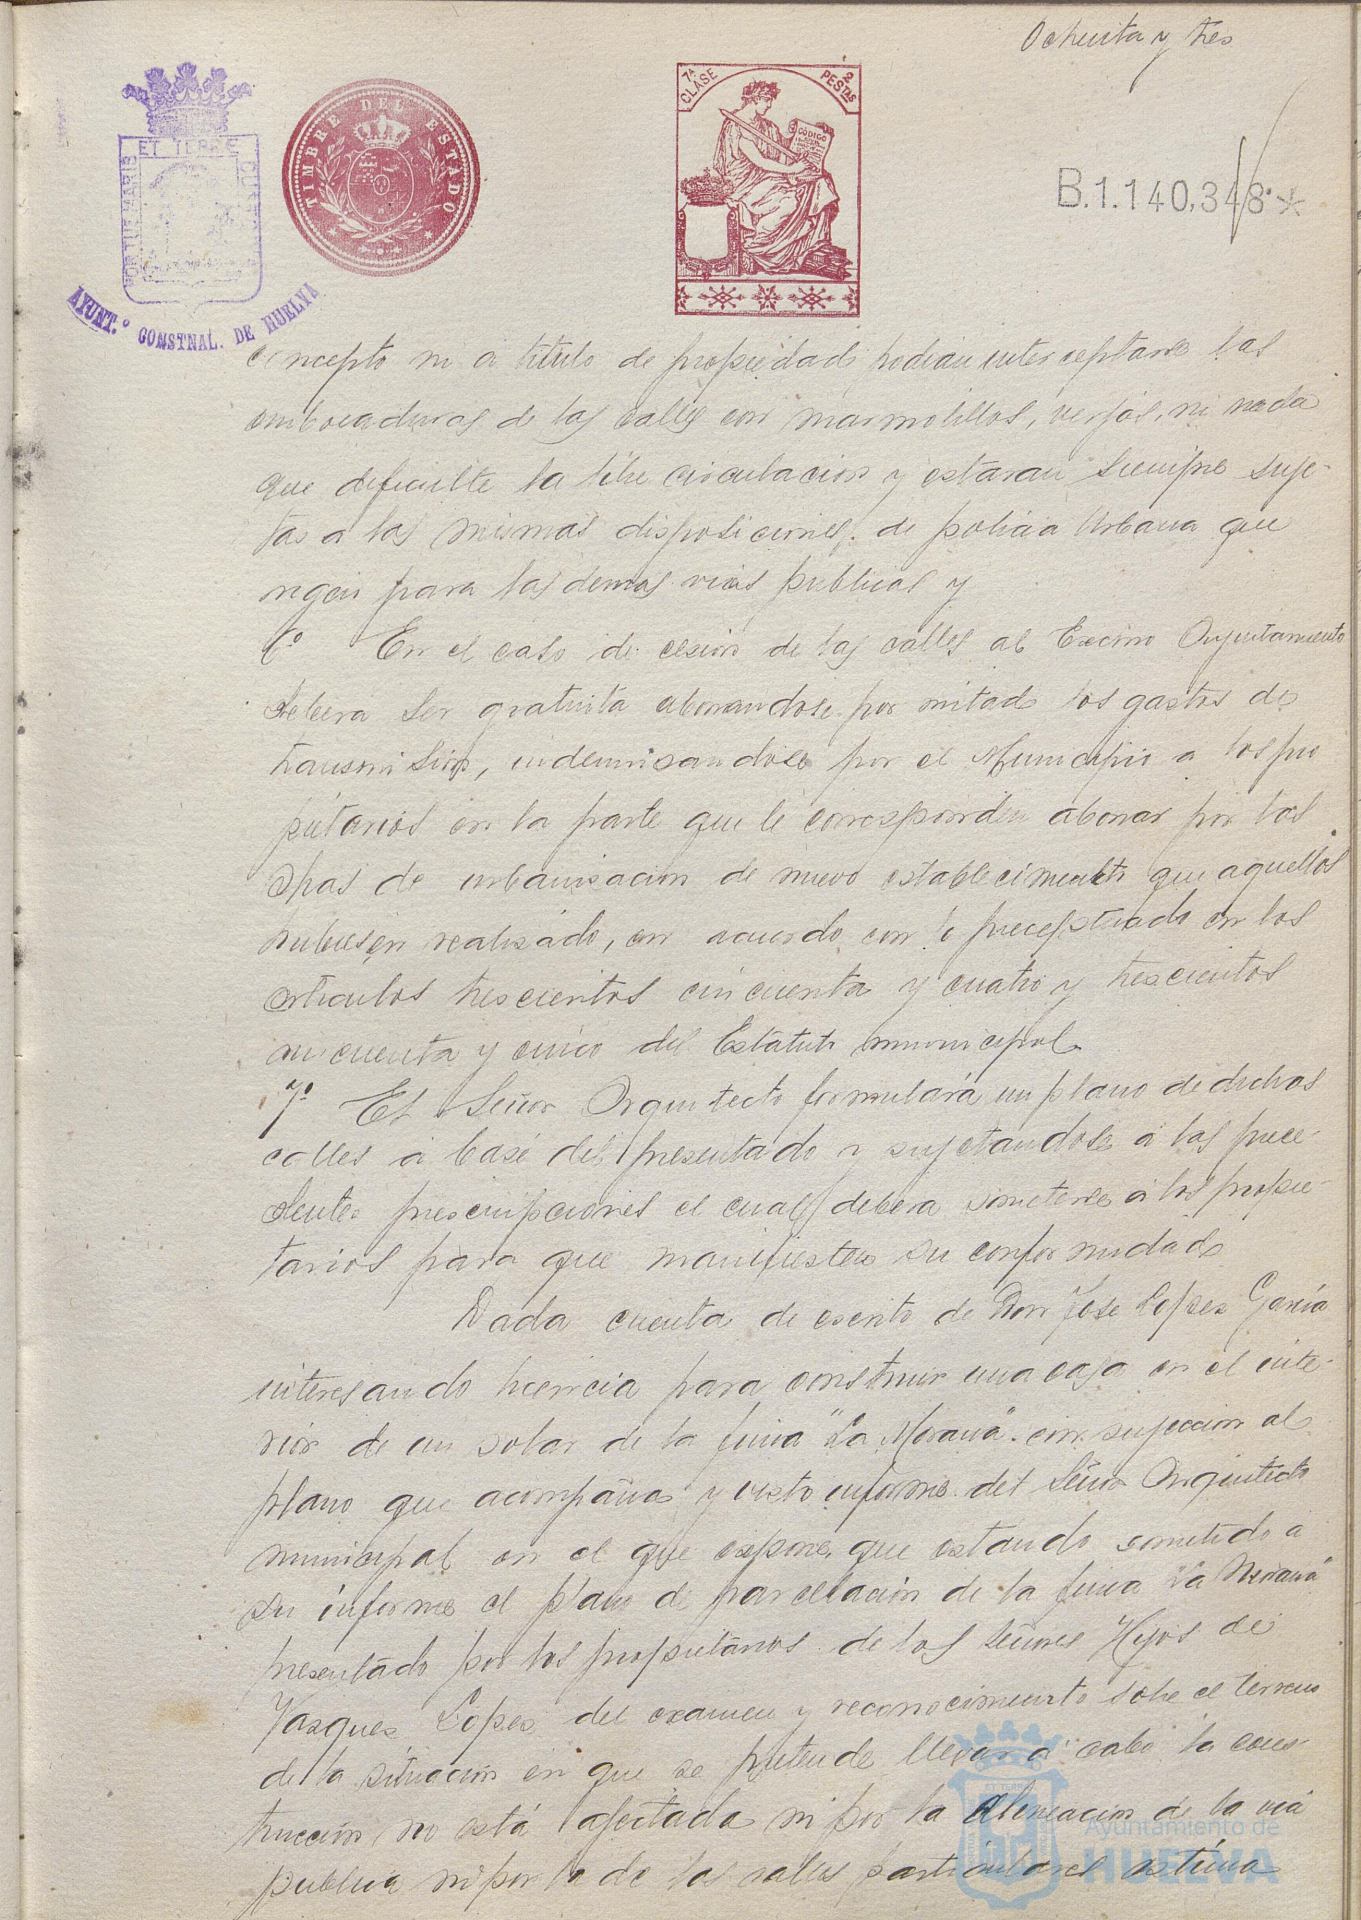 Ochenta y tres
7ª CLASE
2 PESTAS
CÓDIGO
TIMBRE DEL ESTADO
PORTUS MARIS
ET TERRE
AYUNT.º CONSTNAL. DE HUELVA
B.1.140,348*
concepto ni a titulo de propiedad podian interceptarse las
embocaduras de las calles con marmolillos, verjas, ni nada
que dificulte la libre circulacion y estaran siempre suje-
tas a las mismas disposiciones de policia Urbana que
rigen para las demas vias publicas y
6º En el caso de cesion de las calles al Excmo Ayuntamiento
debera ser gratuita abonandose por mitad los gastos de
transmision, indemnisandose por el Municipio a los pro
pietarios en la parte que le corresponden abonar por las
obras de urbanisacion de nuevo establecimiento que aquellos
hubiesen realizado, en acuerdo con lo preceptuado en los
articulos trescientos cincuenta y cuatro y trescientos
cincuenta y cinco del Estatuto municipal
7º El Señor Arquitecto formulará un plano de dichas
calles á base del presentado y sujetandose á las prece-
dentes prescripciones el cual debera someterse á los propie-
tarios para que manifiesten su conformidad
Dada cuenta de escrito de Don Jose Lopez Garcia
interesando licencia para construir una casa en el inte-
rior de un solar de la finca "La Morana" con sujecion al
plano que acompaña y visto informe del Señor Arquitecto
municipal en el que expone que estando sometido a
su informe el plano de parcelación de la finca "La Morana"
presentado por los propietarios de los Señores Hijos de
Vasques Lopes, del examen y reconocimiento sobre el terreno
de la situación en que se pretende llevar a cabo la cons
truccion, no está afectada ni por la alineacion de la via
publica ni por la de las calles particulares estima
Ayuntamiento de
HUELVA